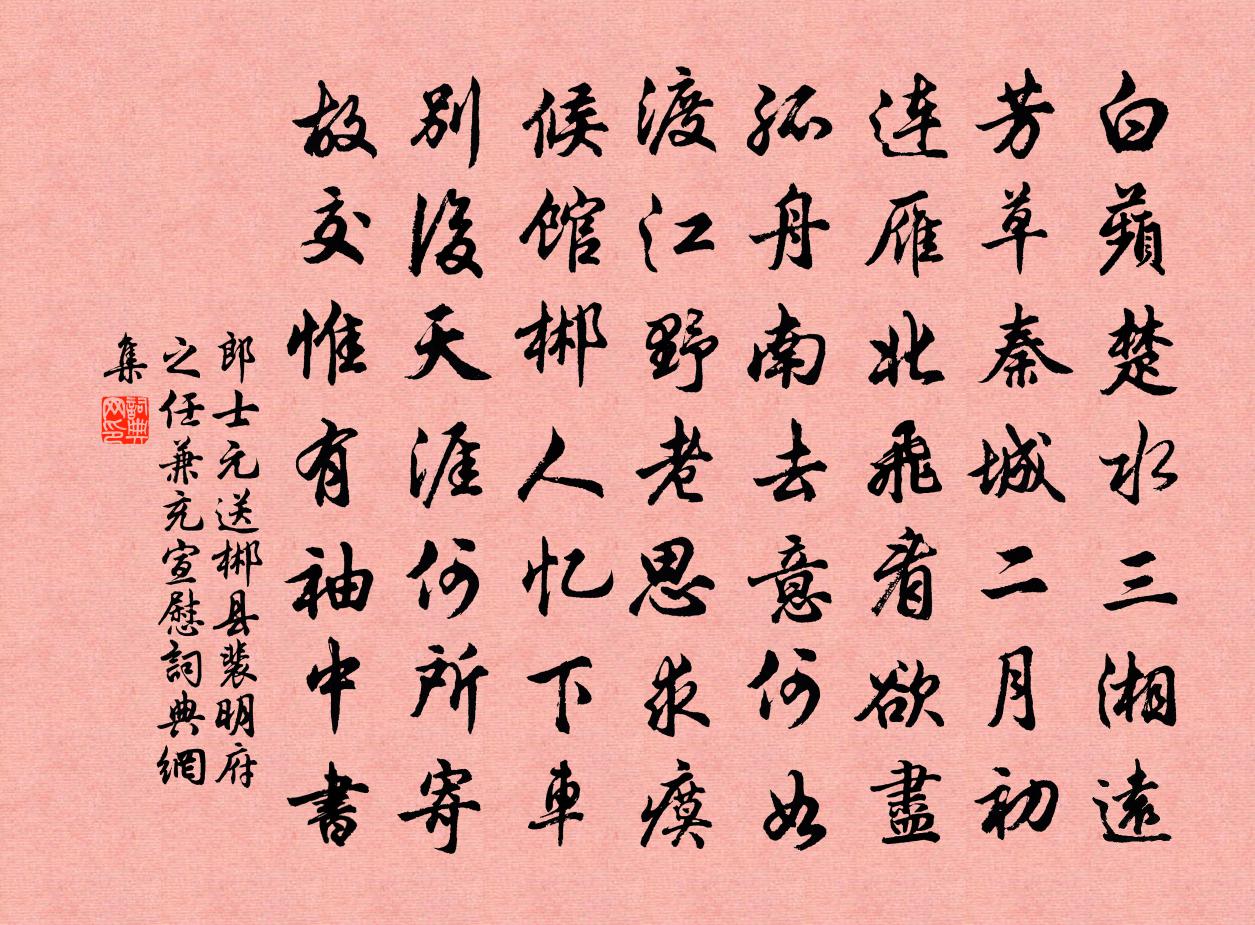 白蘋楚水三湘遠
芳草秦城二月初
连雁北飛看欲盡
孤舟南去意何如
渡江野老思求瘼
候馆郴人忆下車
别後天涯何所寄
故交惟有袖中書
郎士元送郴县裴明府
之任兼充宣慰詞典網
集
詞典网印